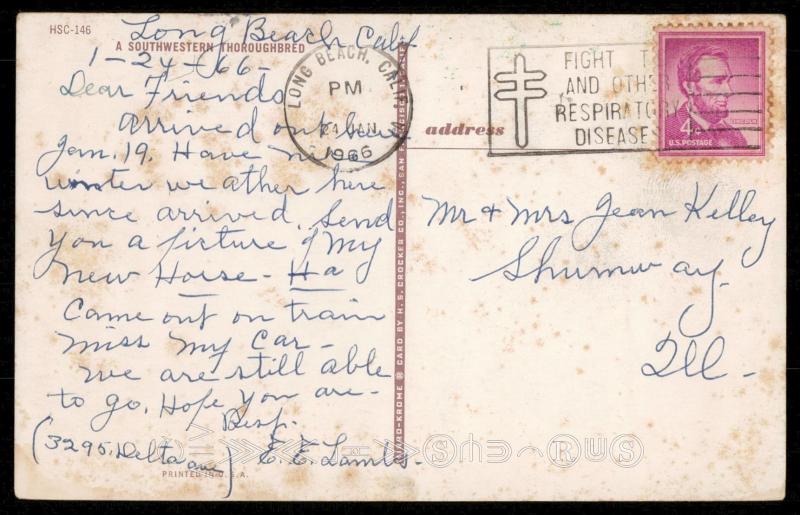 HSC-146
Long Beach Calif
A SOUTHWESTERN THOROUGHBRED
1-24-66-
Dear Friends
Arrived out here
Jan. 19. Have nice
winter weather here
since arrived. Send
you a picture of my
new Horse - Ha
Came out on train
miss my car -
we are still able
to go. Hope you are -
Resp.
(3295 Delta ave) E. E.
PRINTED IN U.S.A.
-KROME ® CARD BY H. S. CROCKER CO., INC., SAN FRANCISCO
LONG BEACH, CALIF.
PM
24 JAN
1966
FIGHT T
AND OTHE
RESPIRATORY
DISEASE
4¢
LINCOLN
U.S. POSTAGE
address
Mr & Mrs Jean Kelley
Shumway.
Ill -